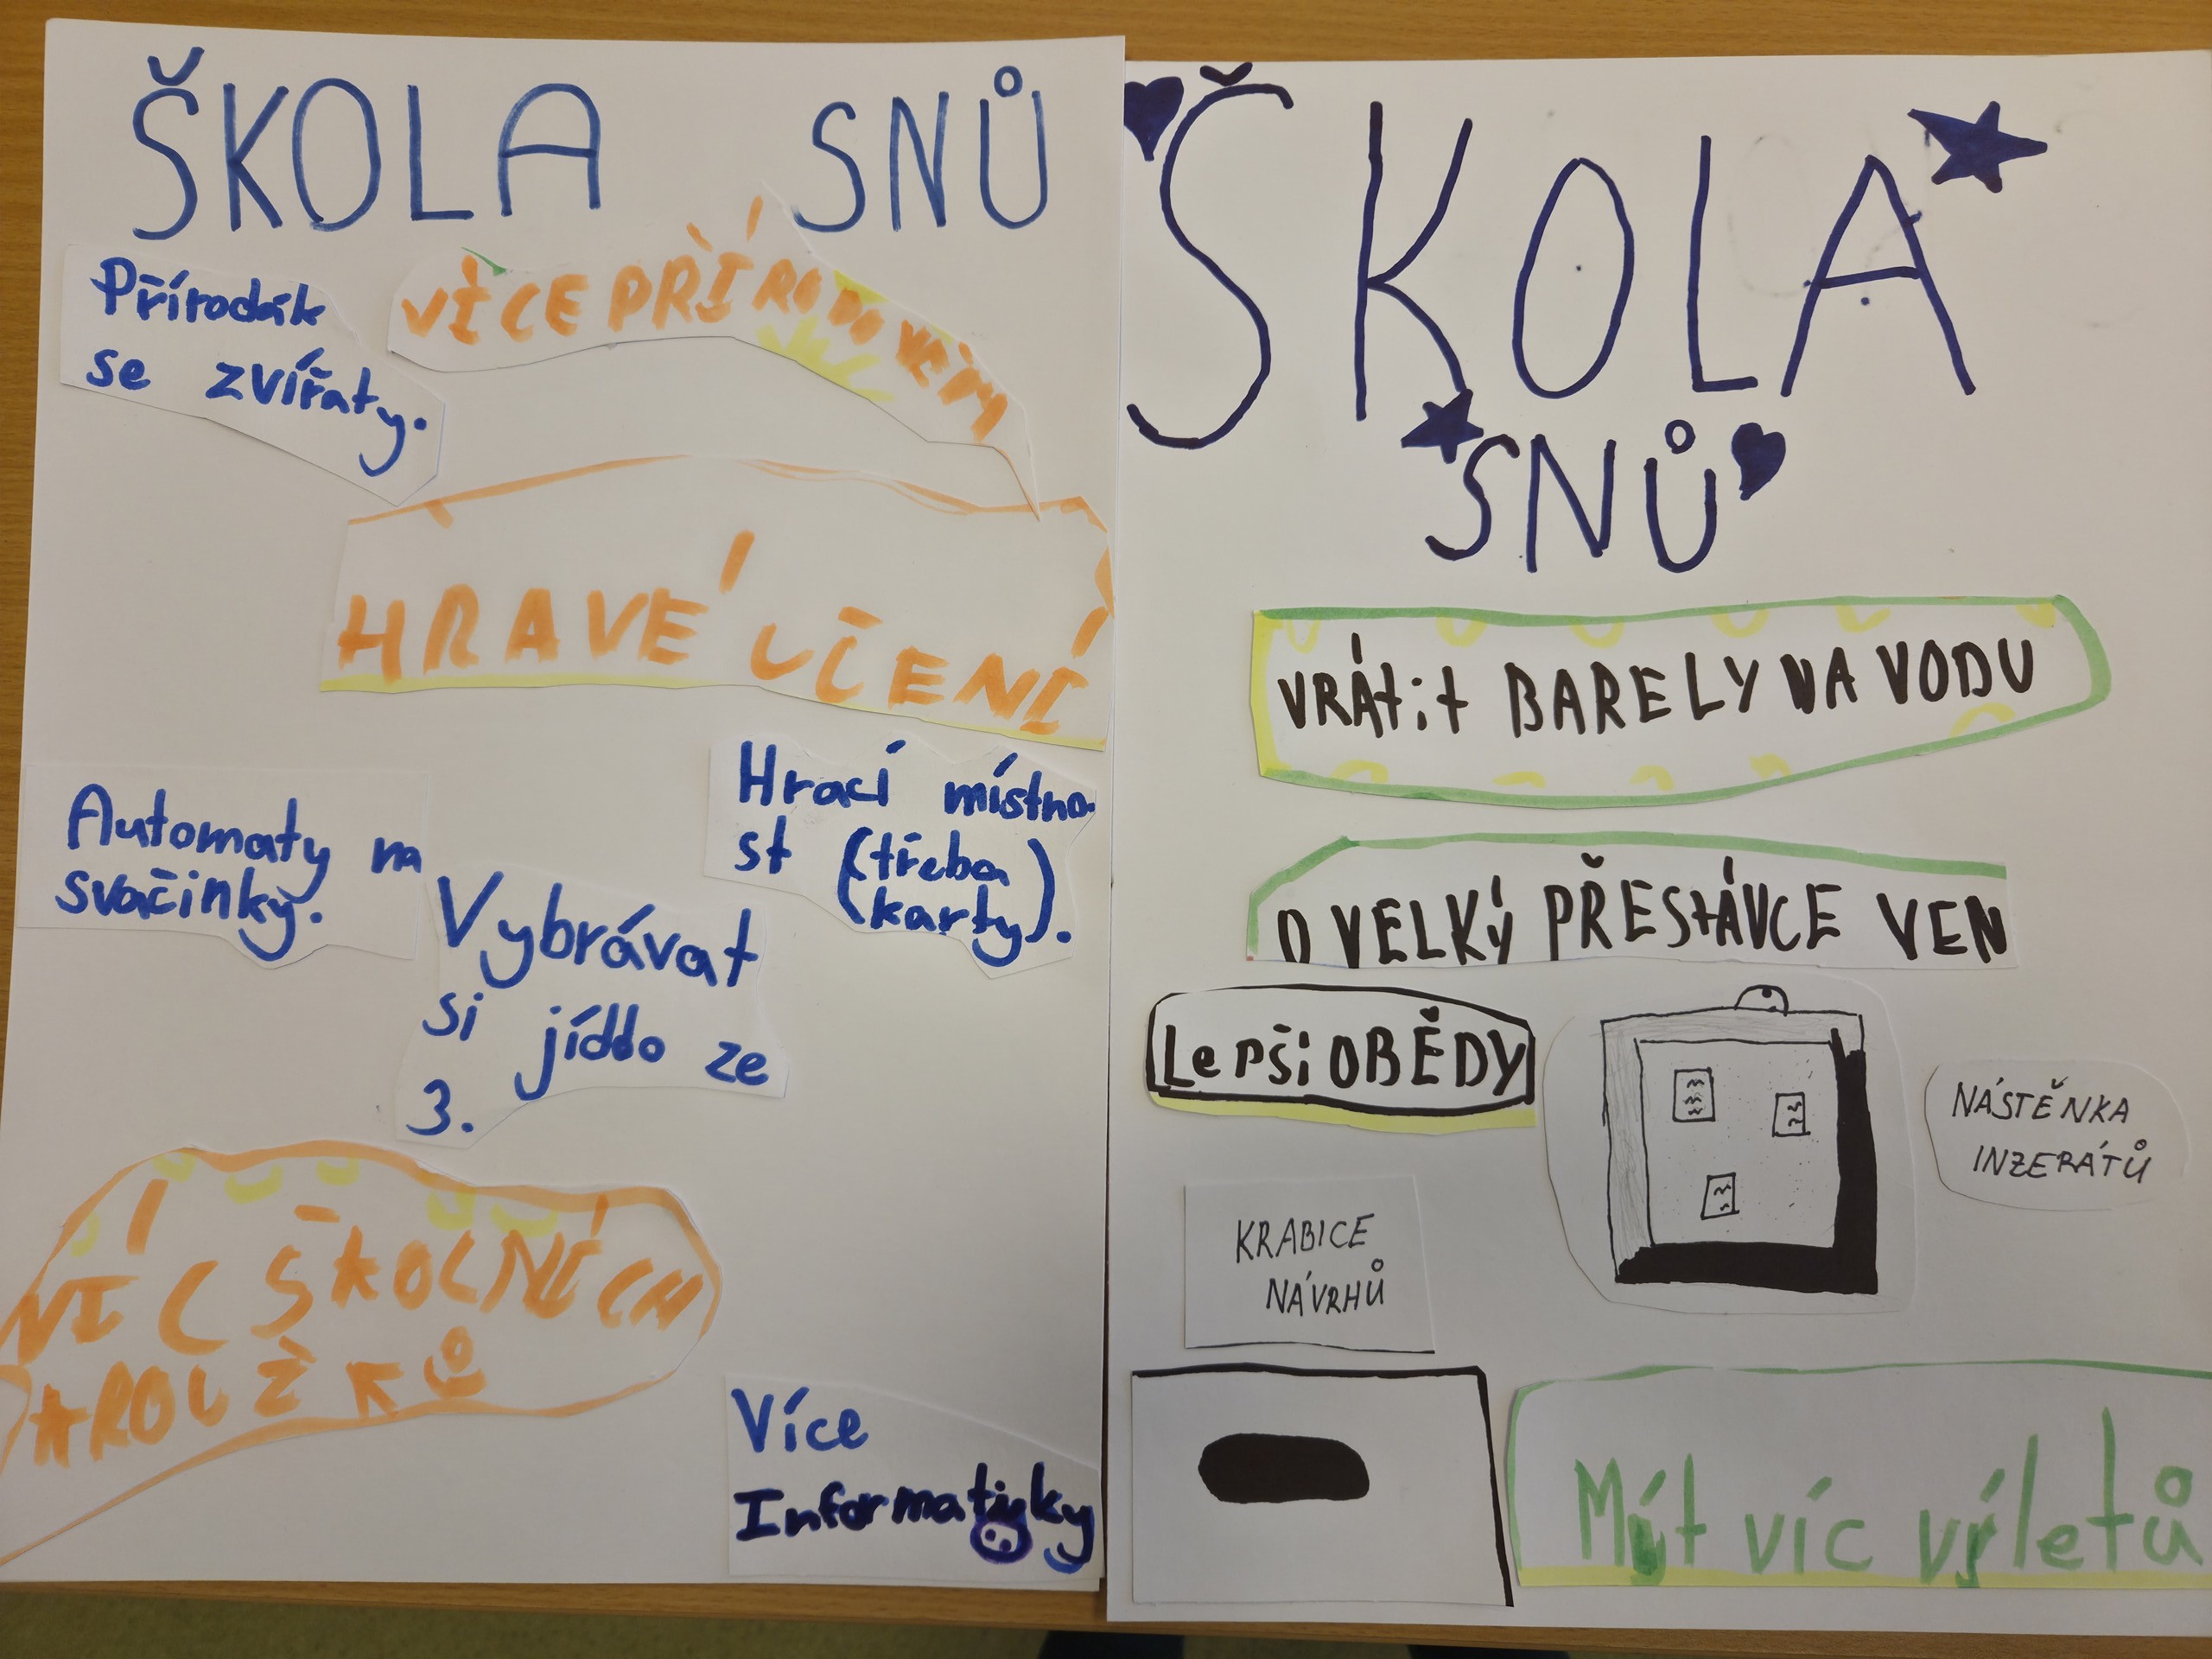 ŠKOLA SNŮ
Přírodák
se zvířaty.
VÍCE PŘÍRODOVĚDY
HRAVÉ UČENÍ
Automaty na
svačinky.
Hrací místno-
st (třeba
karty).
Vybrávat
si jíddo ze
3.
VÍC ŠKOLNÍCH
KROUŽKŮ
Více
Informatiyky
ŠKOLA
SNŮ
VRÁtit BARELY NA VODU
O VELKÝ PŘEStÁVCE VEN
LepšiOBĚDY
NÁSTĚNKA
INZERÁTŮ
KRABICE
NÁVRHŮ
Mít víc výletů